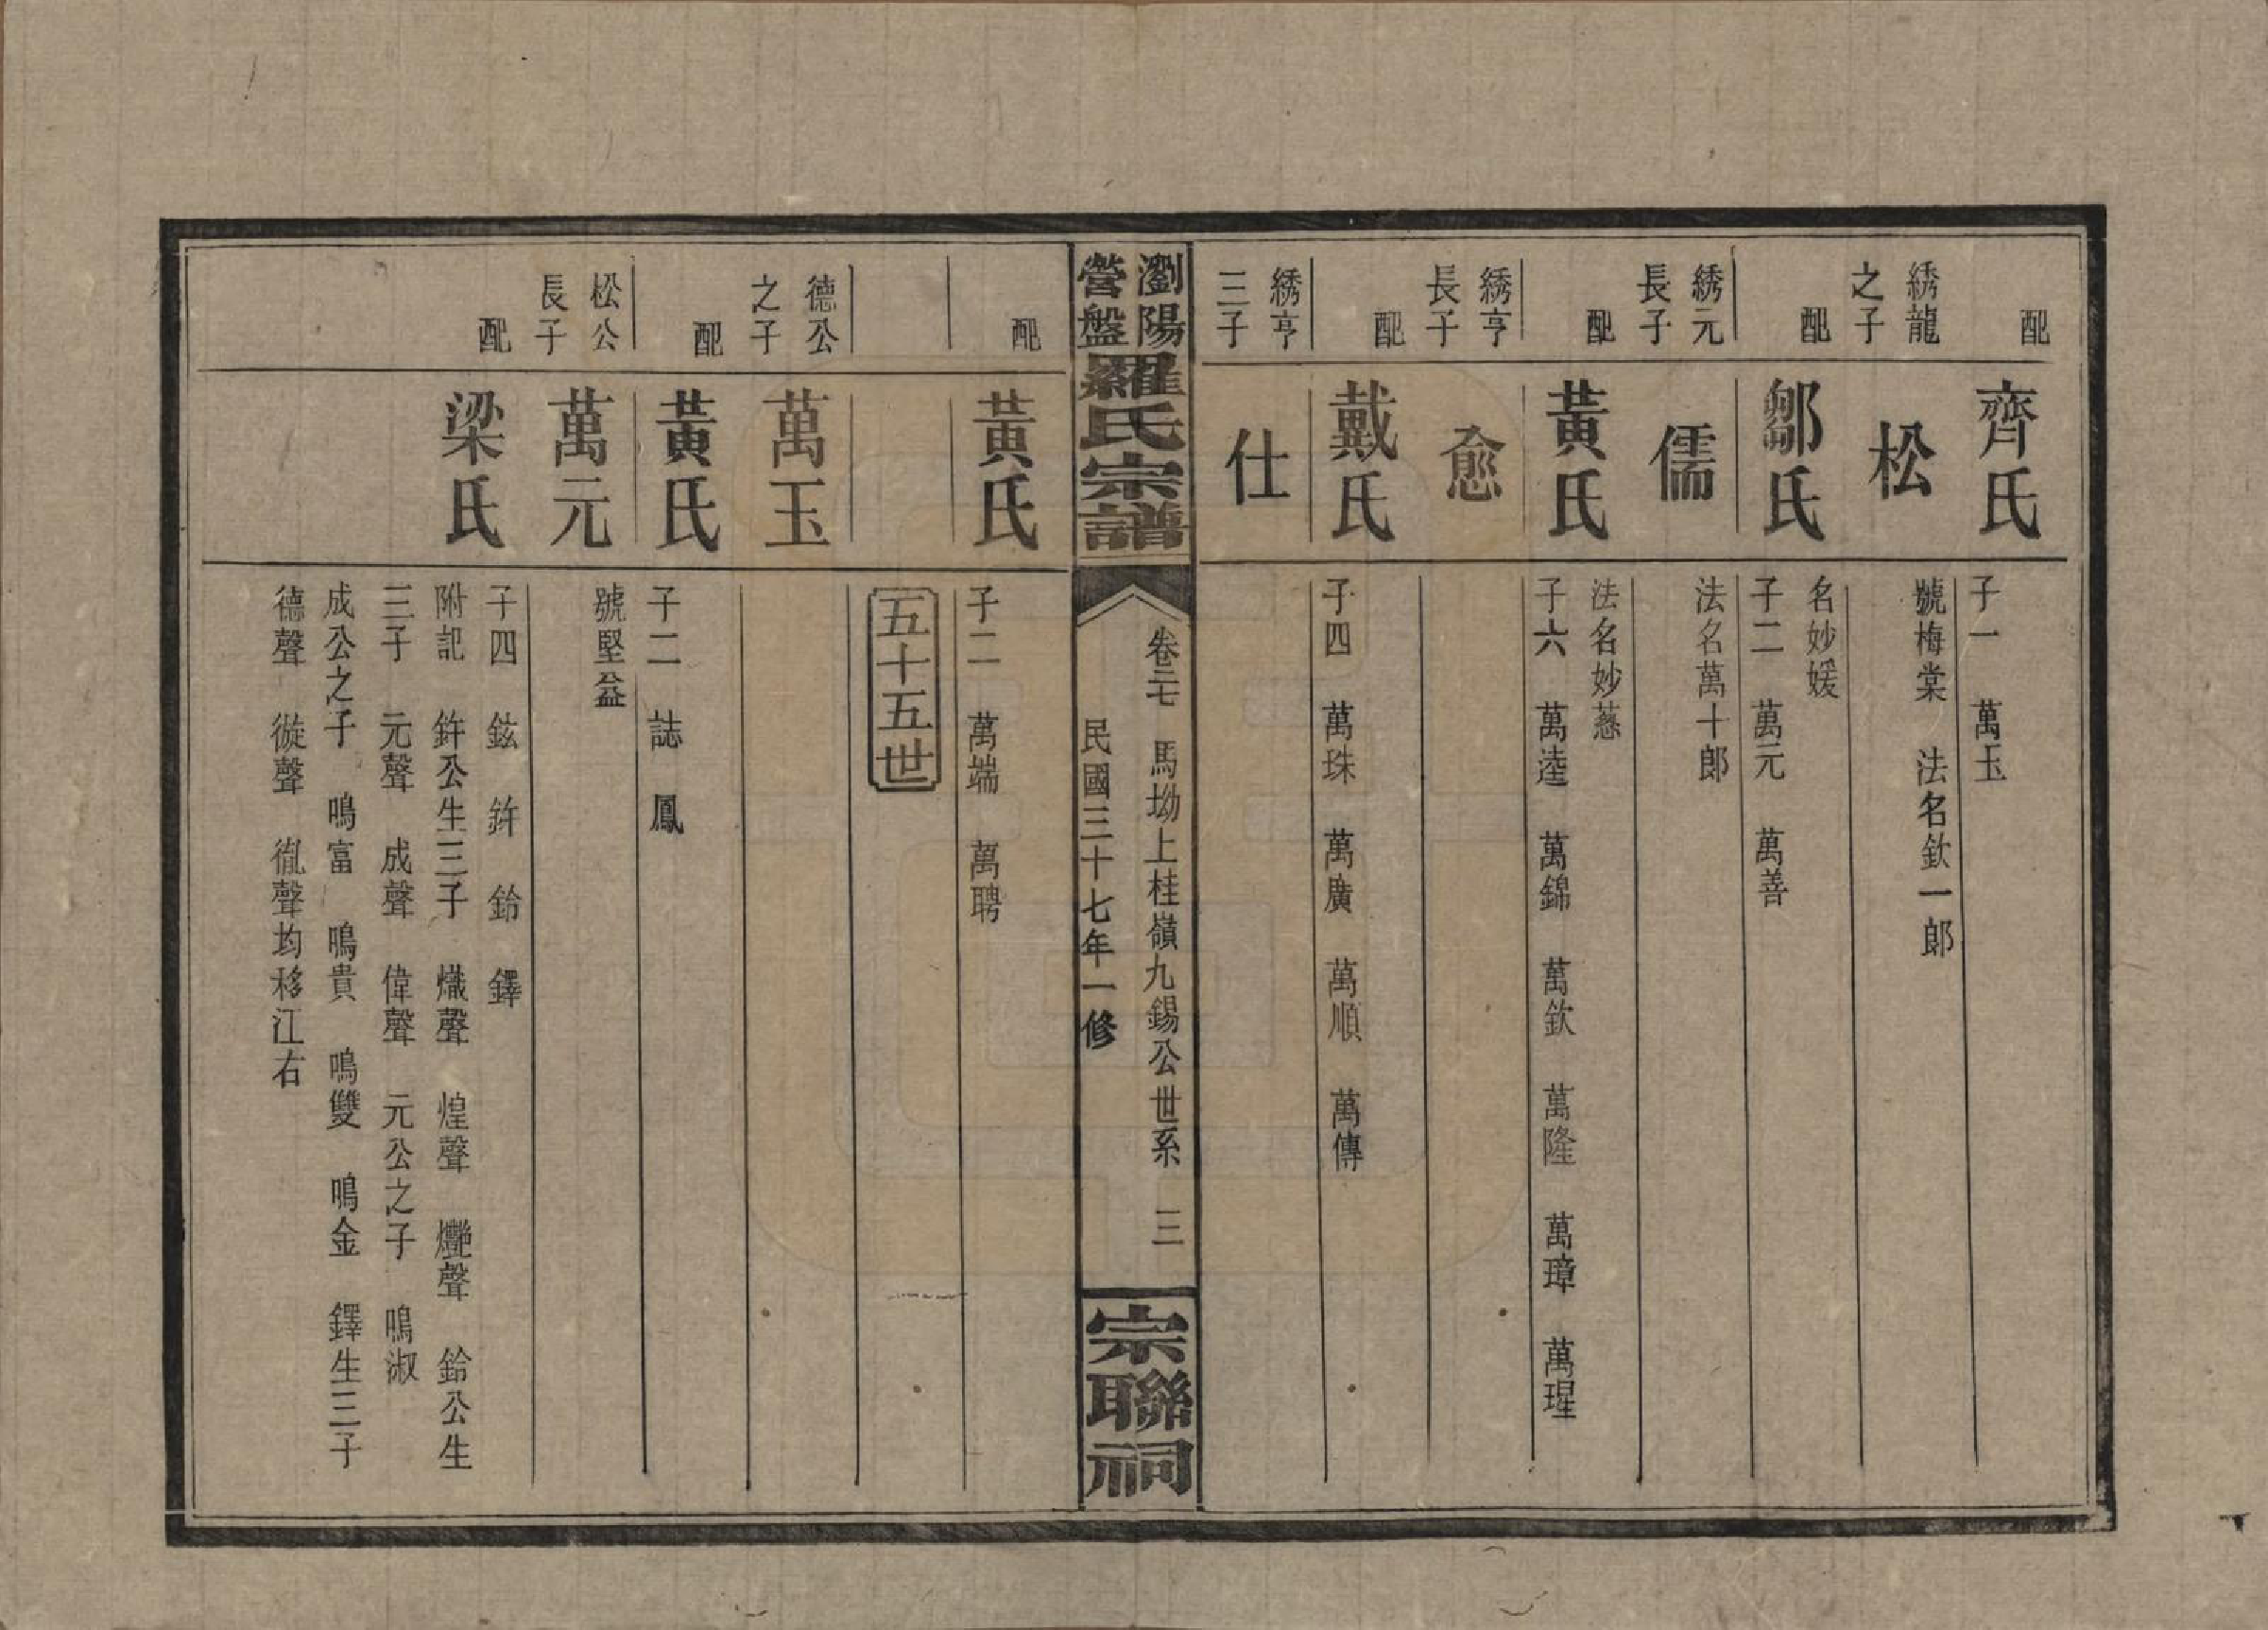 配
齊氏
子一　萬玉
綉龍
之子
松
號梅棠　法名欽一郎
配
鄒氏
名妙媛
子二　萬元　萬善
綉元
長子
儒
法名萬十郎
配
黃氏
法名妙慈
子六　萬逵　萬錦　萬欽　萬隆　萬璋　萬瑆
綉亨
長子
愈
配
戴氏
子四　萬珠　萬廣　萬順　萬傳
綉亨
三子
仕
瀏陽
營盤
羅氏宗譜
卷二七　馬坳上桂嶺九錫公世系　三
民國三十七年一修
宗聯祠
配
黃氏
子二　萬端　萬聘
五十五世
德公
之子
萬玉
配
黃氏
子二　誌　鳳
松公
長子
萬元
號堅益
配
梁氏
子四　鉉　鉾　鈴　鐸
附記　鉾公生三子　熾聲　煌聲　灩聲　鈴公生
三子　元聲　成聲　偉聲　元公之子　鳴淑
成公之子　鳴富　鳴貴　鳴雙　鳴金　鐸生三子
德聲　聲　聲均移江右